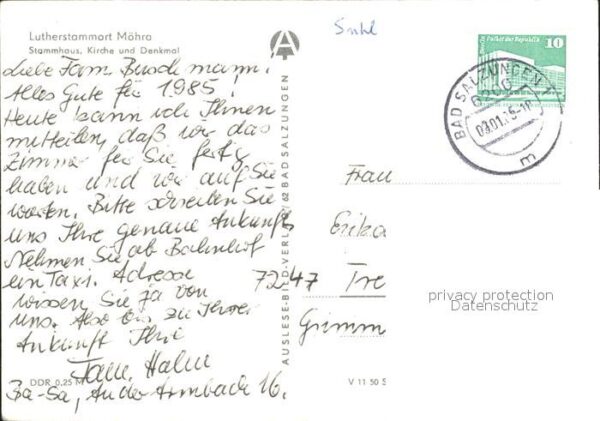 Lutherstammort Möhra
Stammhaus, Kirche und Denkmal
Liebe Fam. Buschmann!
Alles Gute für 1985!
Heute kann ich Ihnen
mitteilen, daß wir das
Zimmer für Sie fertig
haben und wir auf Sie
warten. Bitte schreiben Sie
uns Ihre genaue Ankunft
Nehmen Sie ab Bahnhof
ein Taxi. Adresse
wissen Sie ja von
uns. Also bis zu Ihrer
Ankunft Ihre
Fam. Halm
Ba-Sa, An der Armbach 16.
DDR 0.25 M
AUSLESE-BILD-VERLAG 62 BAD SALZUNGEN
V 11 50
Suhl
Berlin, Palast der Republik
10
DDR
BAD SALZUNGEN 1
6200
m
Frau
Erika
7247 Tre
Grimm
privacy protection
Datenschutz